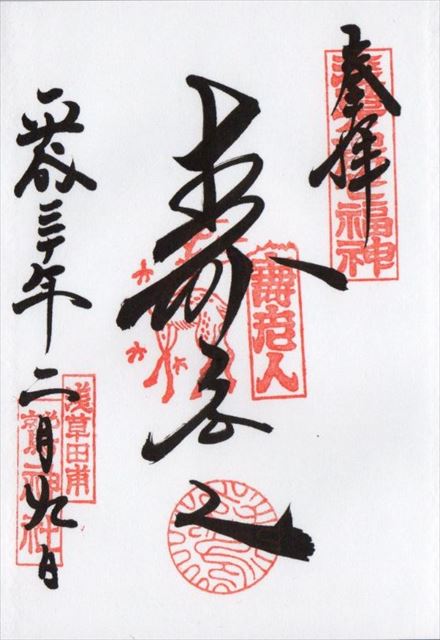 奉拝
浅草名所七福神
寿老人
壽老人
平成三十年二月九日
浅草田甫
鷲神社